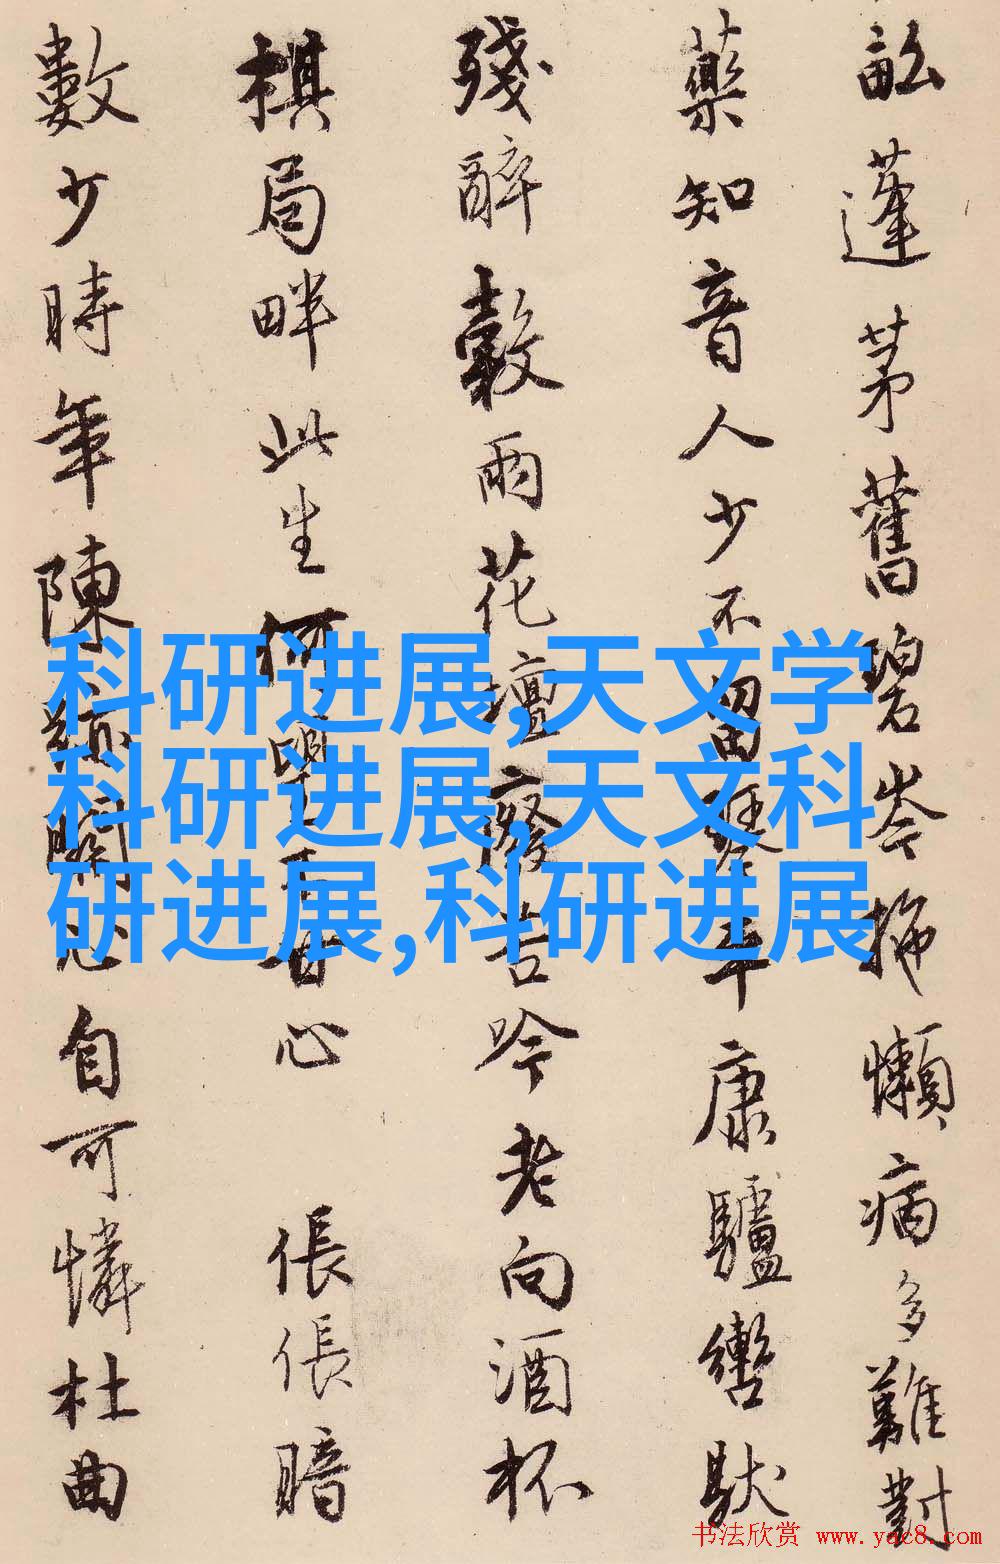 蓬茅舊碧岑拖懶病多難對
藥知音人少不留康驢轡馱
殘醉穀雨花壇廢苦吟老向酒杯
棋局畔此生何甘心 倀倀暗
數少時年陳心自可憐杜曲
科研进展,天文学
科研进展,天文科
研进展,科研进展
书法欣赏 www.yac8.com